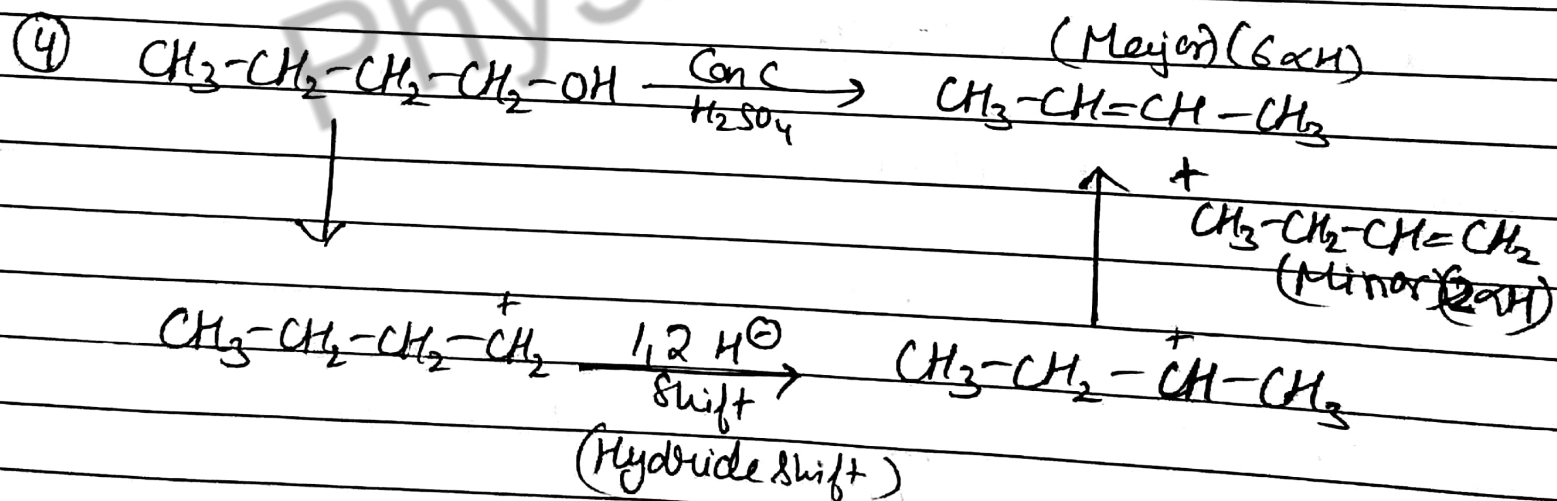 ④ CH₃-CH₂-CH₂-CH₂-OH Conc H₂SO₄ → (Major) (6αH)
CH₃-CH=CH-CH₃
+
CH₃-CH₂-CH=CH₂
(Minor) (2αH)
CH₃-CH₂-CH₂-CH₂⁺ 1,2 H⊖ Shift → CH₃-CH₂-CH⁺-CH₃
(Hydride Shift)
Phys